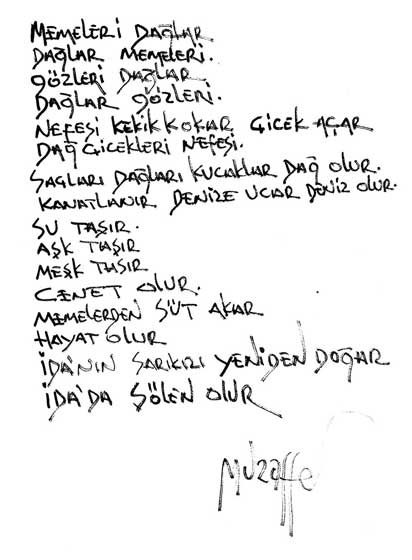 MEMELERİ DAĞLAR
DAĞLAR MEMELERİ.
GÖZLERİ DAĞLAR
DAĞLAR GÖZLERİ.
NEFESİ KEKİK KOKAR ÇİÇEK AÇAR
DAĞ ÇİÇEKLERİ NEFESİ.
SAÇLARI DAĞLARI KUCAKLAR DAĞ OLUR.
KANATLANIR DENİZE UÇAR DENİZ OLUR.
SU TAŞIR.
AŞK TAŞIR
MEŞK TAŞIR
CENET OLUR.
MEMELERDEN SÜT AKAR
HAYAT OLUR
İDA'NIN SARIKIZI YENİDEN DOĞAR
İDA'DA ŞÖLEN OLUR
Muzaffe